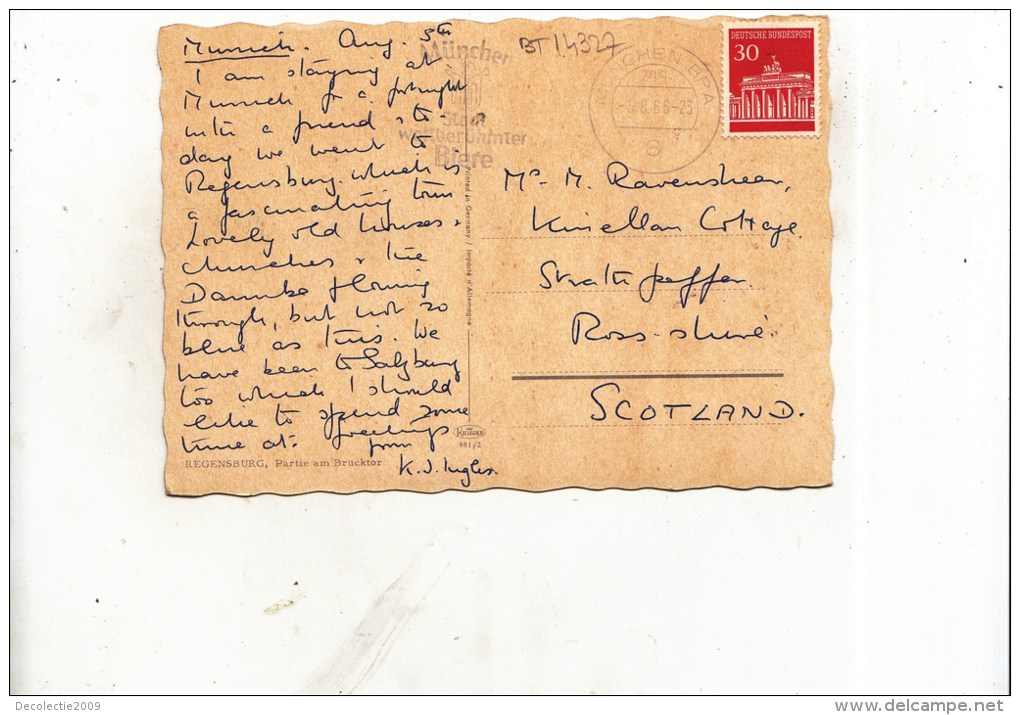 Munich. Aug. 5th
I am staying at
Munich for a fortnight
with a friend & to-
day we went to
Regensburg which is
a fascinating town
Lovely old houses &
churches & the
Danube flowing
through, but not so
blue as this. We
have been to Salzburg
too which I should
like to spend some
time at. Greetings
from
K. J. Ingles.
REGENSBURG, Partie am Brücktor
München
Stadt
weltberühmter
Biere
BT 14327
MÜNCHEN BPA
8.66-23
8
DEUTSCHE BUNDESPOST
30
Printed in Germany / Importé d'Allemagne
KRÜGER
981/2
M. Ravenshear,
Kinellan Cottage
Strathpeffer.
Ross-shire.
SCOTLAND.
Decolectie2009
www.delcampe.net